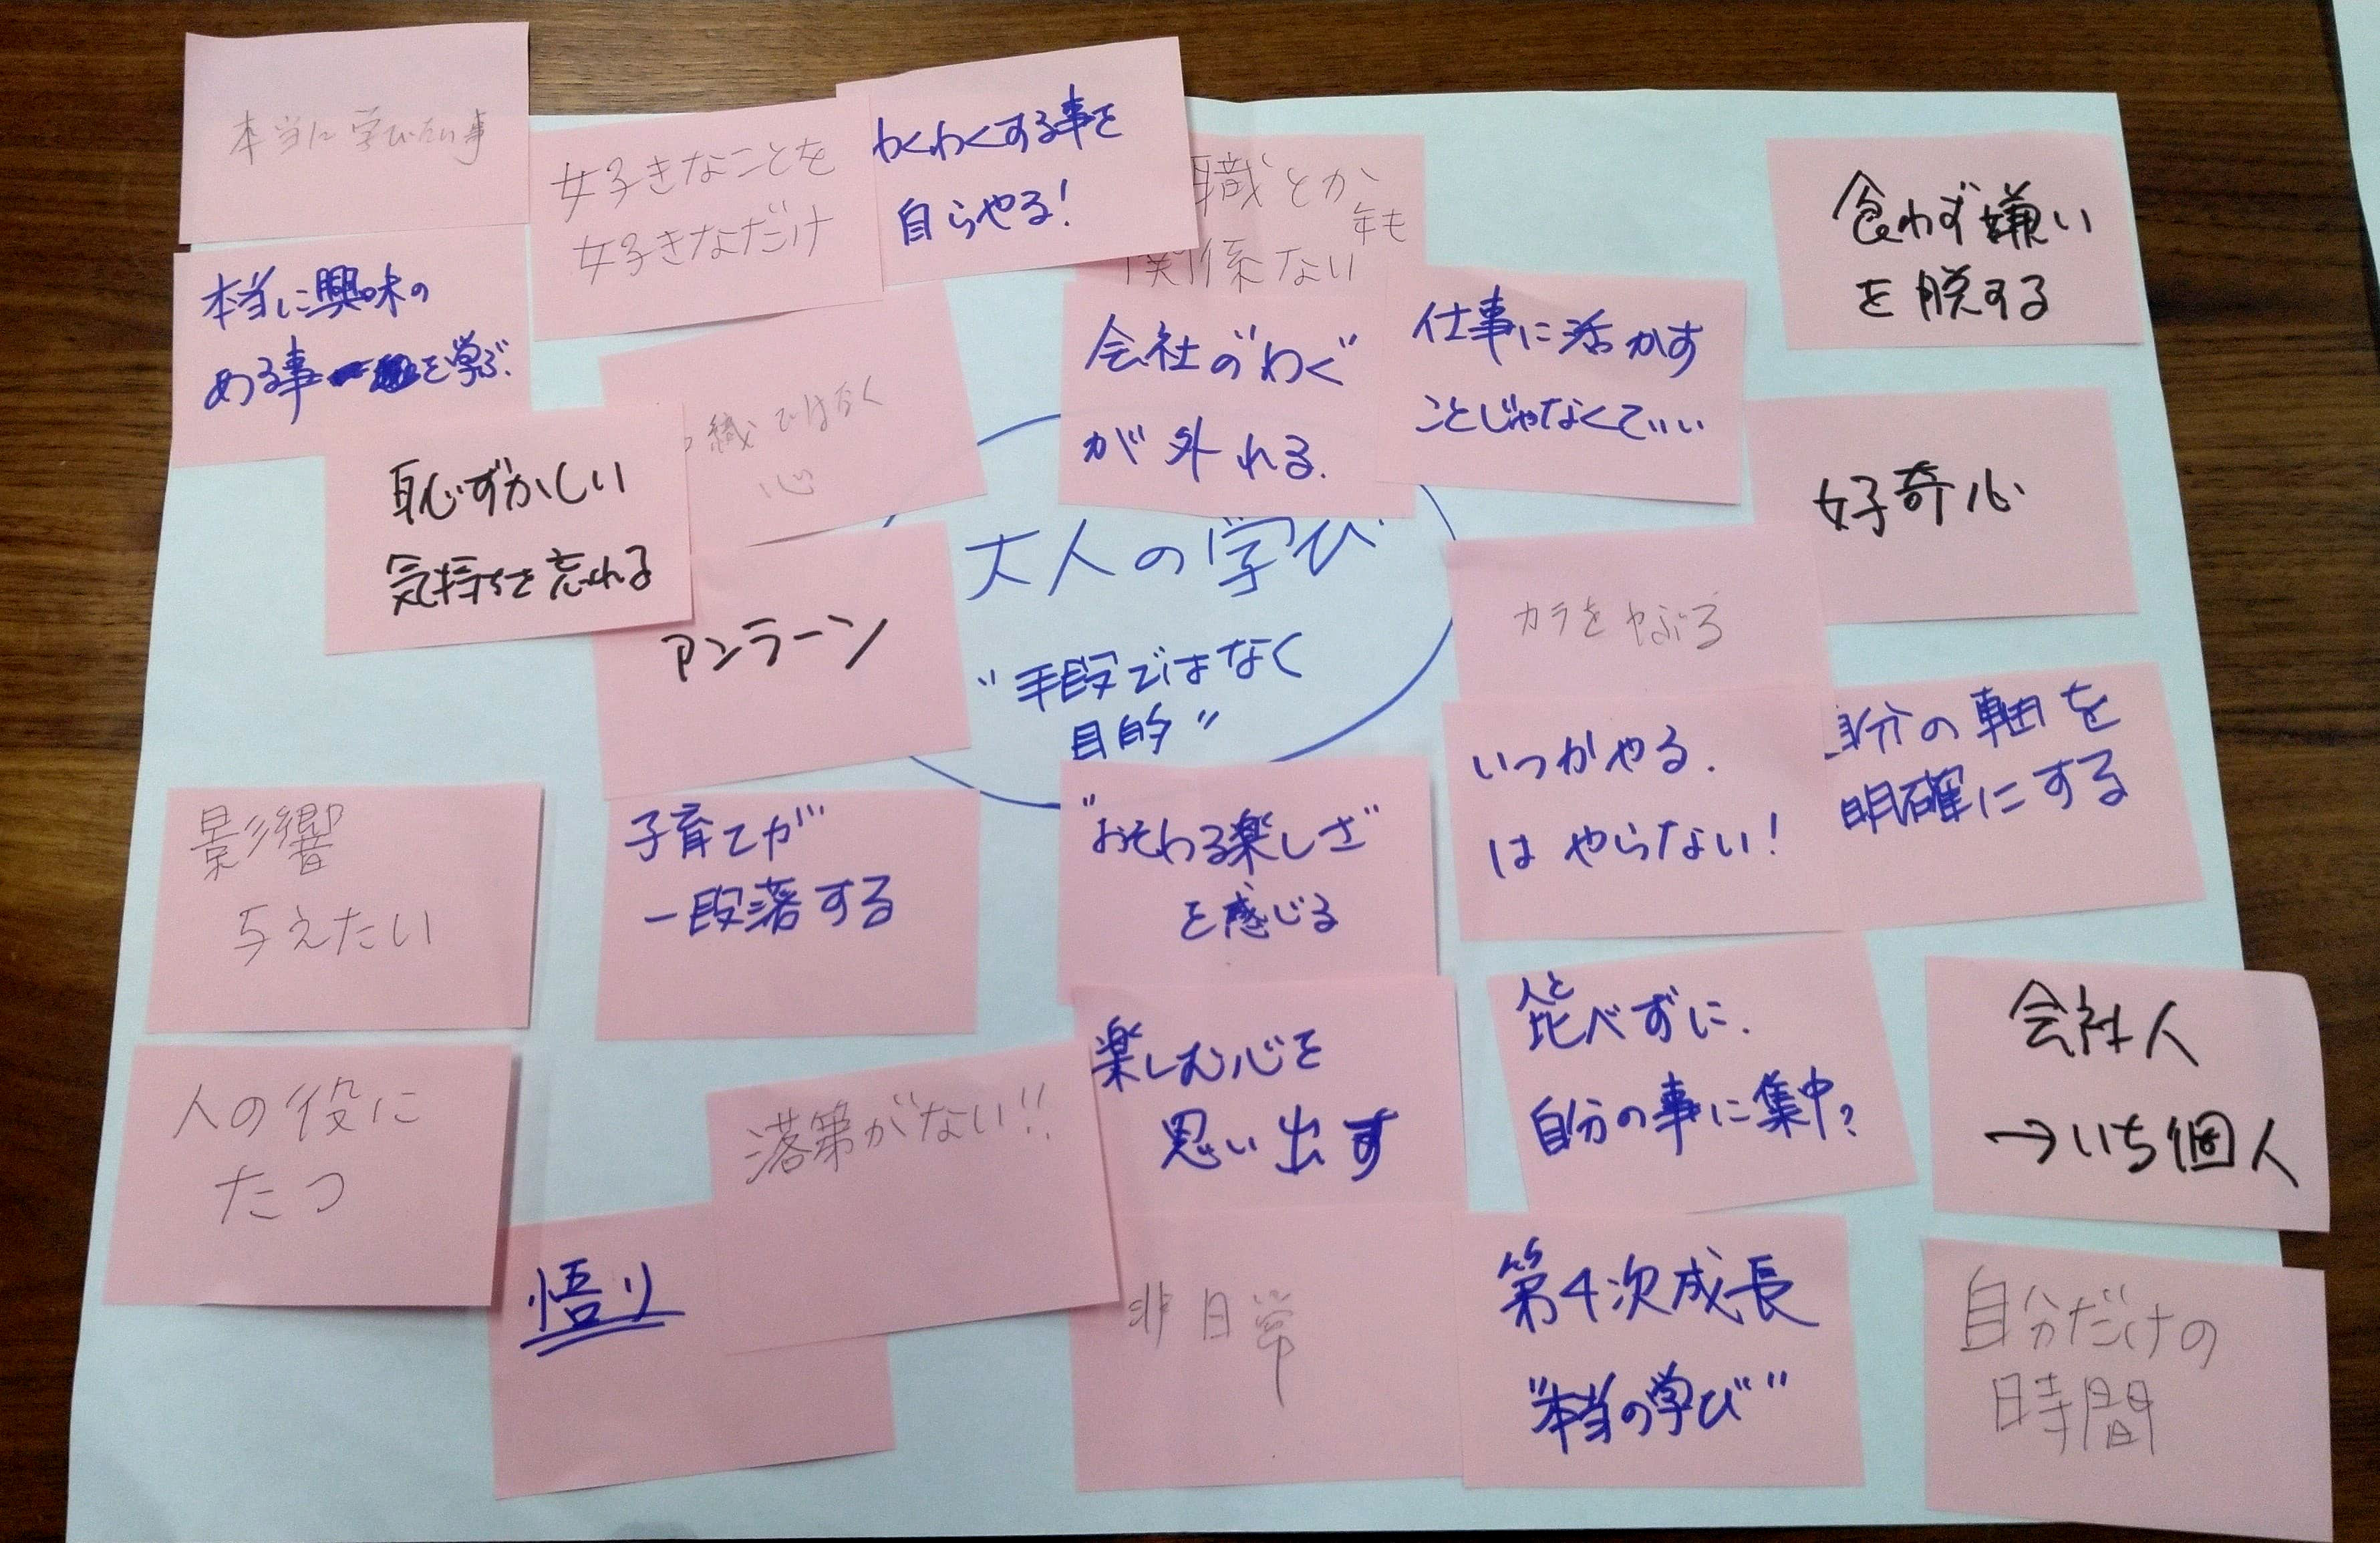 本当に学びたい事
好きなことを
好きなだけ
わくわくする事を
自らやる!
職とか
年も
関係ない
食わず嫌い
を脱する
本当に興味の
ある事
を学ぶ.
会社の"わく"
が外れる.
仕事に活かす
ことじゃなくていい
織ではなく
心
恥ずかしい
気持ちを忘れる
好奇心
大人の学び
"手段ではなく
目的"
アンラーン
カラをやぶる
いつかやる.
はやらない!
自分の軸を
明確にする
影響
与えたい
子育てが
一段落する
"おそわる楽しさ"
を感じる
人と
比べずに.
自分の事に集中?
会社人
→いち個人
人の役に
たつ
落第がない!!
楽しむ心を
思い出す
悟り
非日常
第4次成長
"本当の学び"
自分だけの
時間